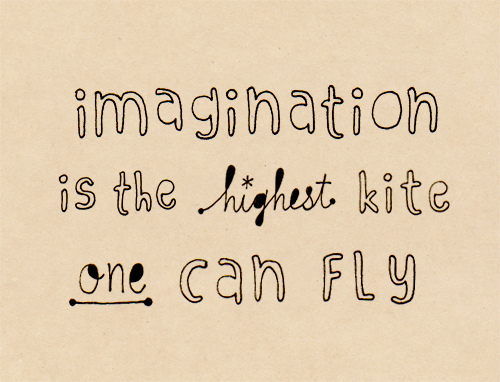 imagination
is the highest kite
one can FLY